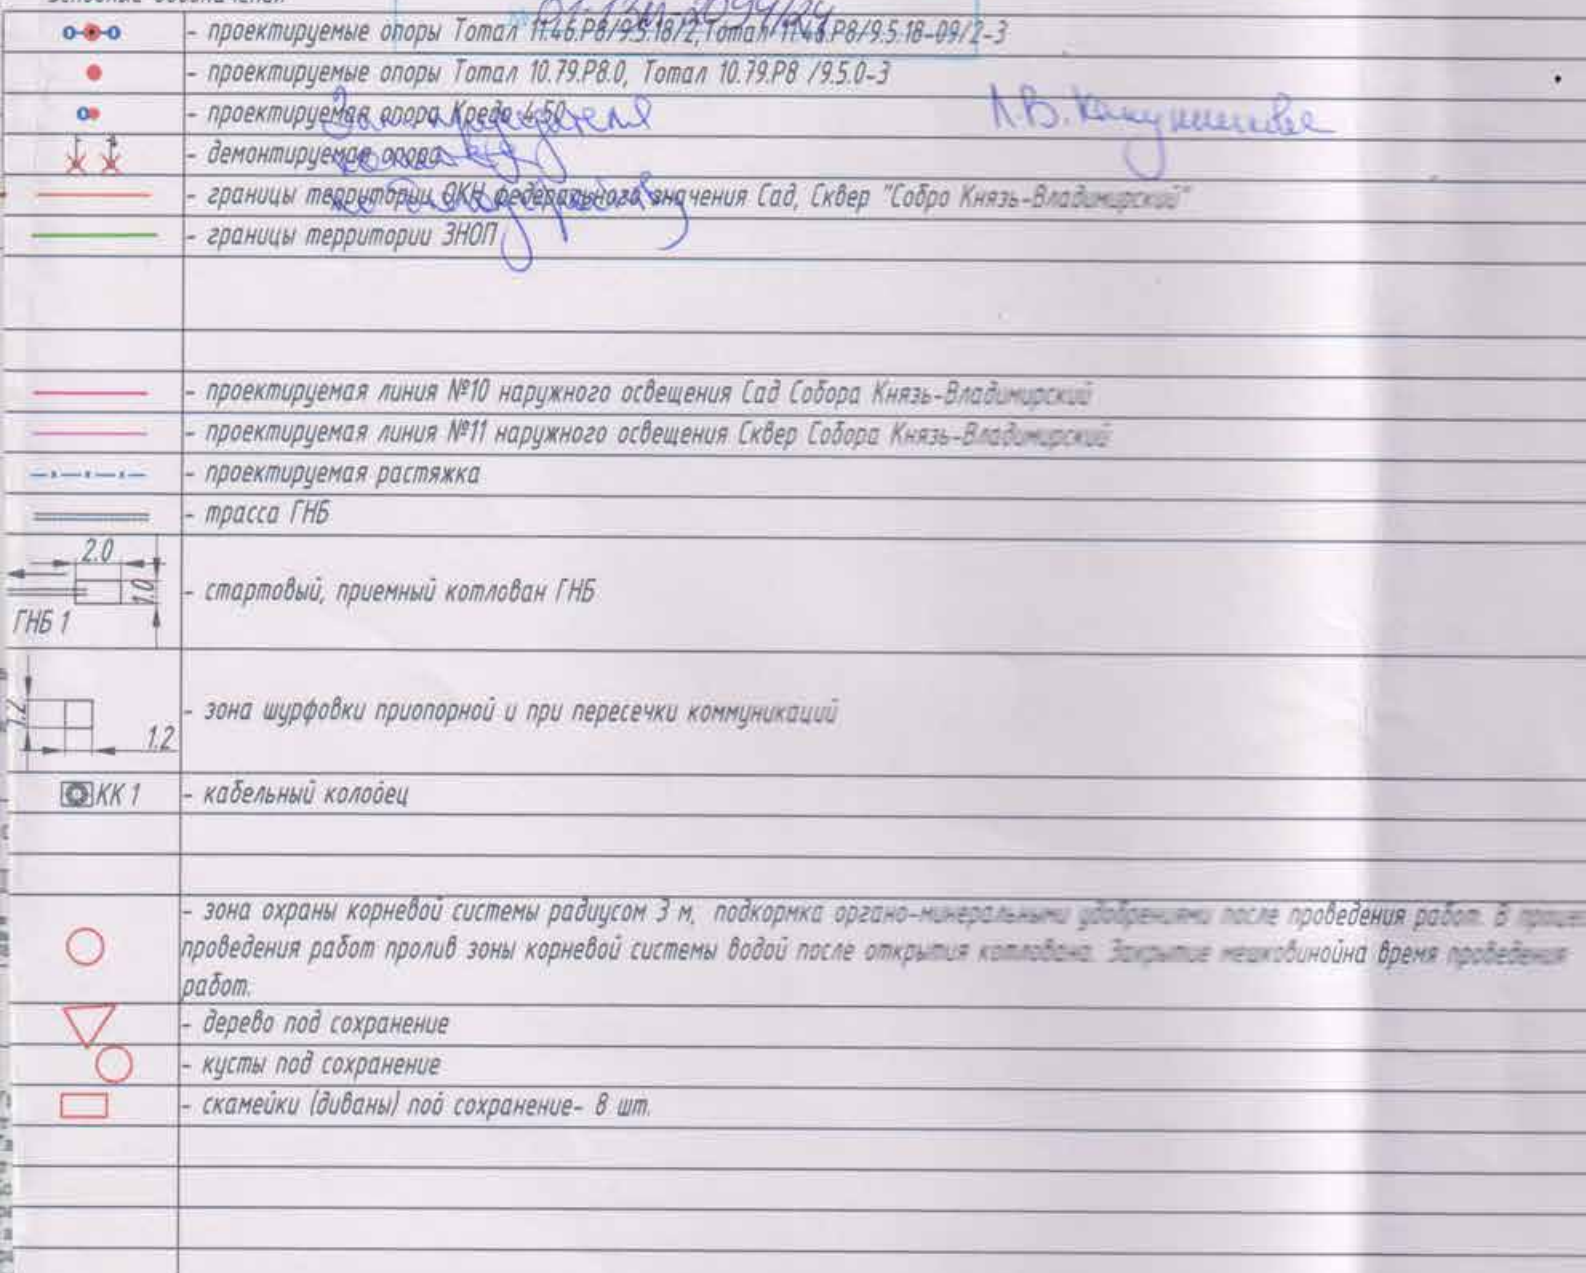 - проектируемые опоры Тотал 11.46.Р8/9.5.18/2, Тотал 11.46.Р8/9.5.18-09/2-3
- проектируемые опоры Тотал 10.79.Р8.0, Тотал 10.79.Р8 /9.5.0-3
- проектируемая опора Кредо 4.50
Зам. председателя
Л.В. Канунникова
- демонтируемая опора
- границы территории ОКН федерального значения Сад, Сквер "Собро Князь-Владимирский"
- границы территории ЗНОП
- проектируемая линия №10 наружного освещения Сад Собора Князь-Владимирский
- проектируемая линия №11 наружного освещения Сквер Собора Князь-Владимирский
- проектируемая растяжка
- трасса ГНБ
2.0
1.0
ГНБ 1
- стартовый, приемный котлован ГНБ
1.2
1.2
- зона шурфовки приопорной и при пересечки коммуникаций
КК 1
- кабельный колодец
- зона охраны корневой системы радиусом 3 м, подкормка органо-минеральными удобрениями после проведения работ. В
проведения работ пролив зоны корневой системы водой после открытия котлована. Закрытие мешковинойна время проведения
работ.
- дерево под сохранение
- кусты под сохранение
- скамейки (диваны) под сохранение- 8 шт.